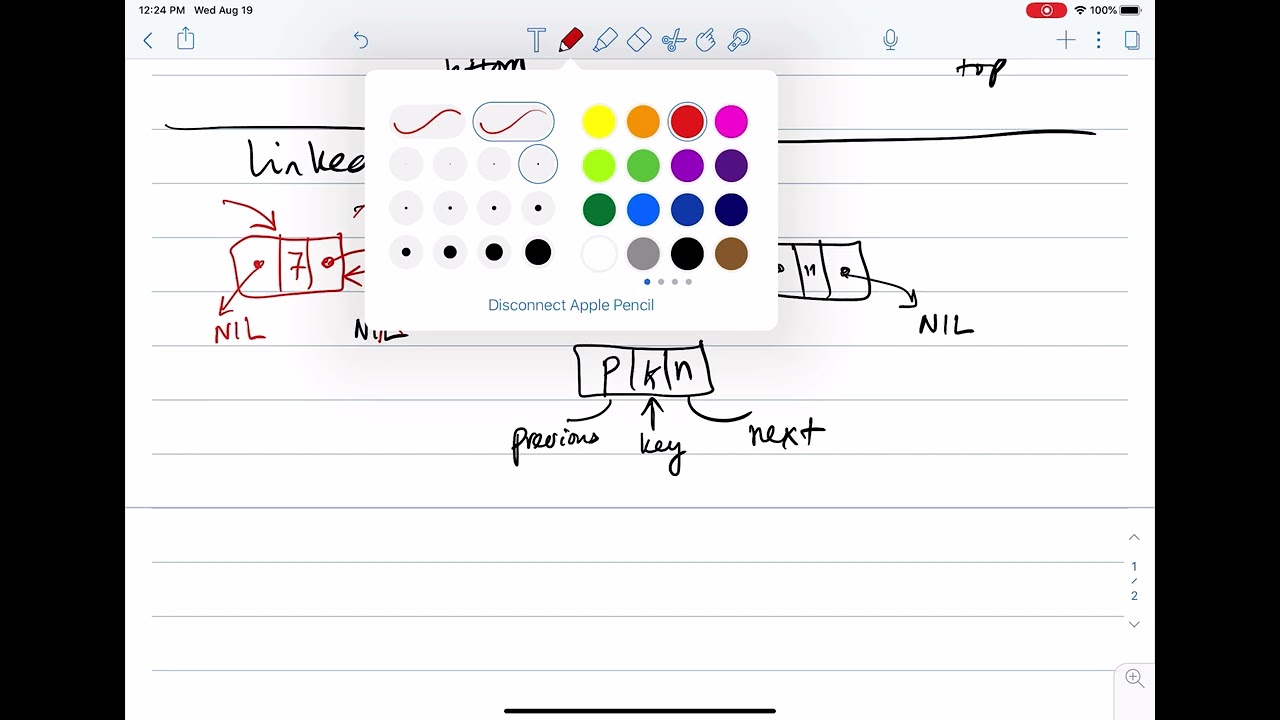 12:24 PM Wed Aug 19 100%
bottom top
Linked
7 n
NIL NIL NIL
Disconnect Apple Pencil
p k n
previous key next
1
/
2